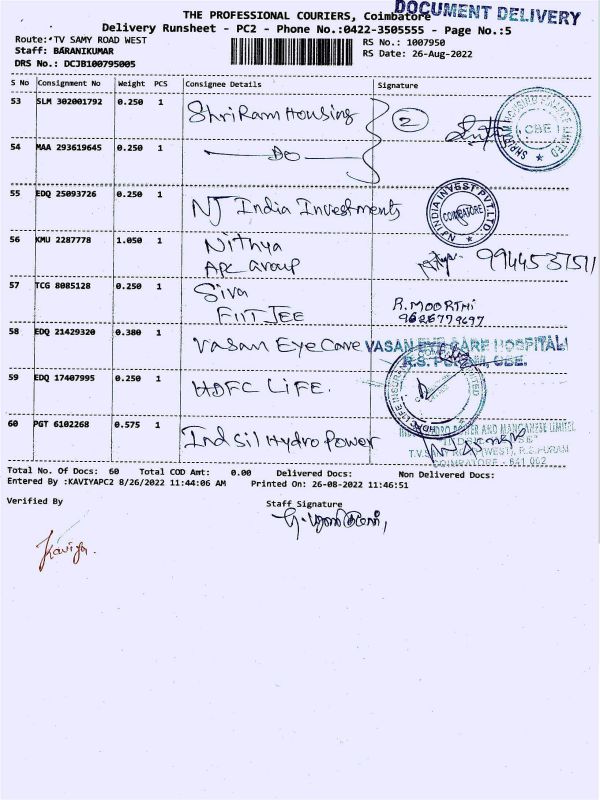 DOCUMENT DELIVERY
THE PROFESSIONAL COURIERS, Coimbatore
Delivery Runsheet - PC2 - Phone No.:0422-3505555 - Page No.:5
Route: TV SAMY ROAD WEST
RS No.: 1007950
Staff: BARANIKUMAR
RS Date: 26-Aug-2022
DRS No.: DCJB100795005
S No Consignment No Weight PCS Consignee Details Signature
53 SLM 302001792 0.250 1 ShriRam Housing 2
SHRIRAM HOUSING FINANCE LIMITED CBE
54 MAA 293619645 0.250 1 Do
55 EDQ 25093726 0.250 1 NJ India Investments
NJ INDIA INVEST PVT. LTD. COIMBATORE
56 KMU 2287778 1.050 1 Nithya
APC Group
9944537511
57 TCG 8085128 0.250 1 Siva
FIITJEE
R. MOORTHI
9626779697
58 EDQ 21429320 0.380 1 Vasan Eye Care VASAN EYE CARE HOSPITAL
R.S. PURAM, CBE.
59 EDQ 17407995 0.250 1 HDFC LIFE.
60 PGT 6102268 0.575 1 Indsil Hydro Power
HYDRO POWER AND MANGANESE LIMITED
T.V. (WEST), R.S. PURAM
COIMBATORE - 641 002
Total No. Of Docs: 60 Total COD Amt: 0.00 Delivered Docs: Non Delivered Docs:
Entered By :KAVIYAPC2 8/26/2022 11:44:06 AM Printed On: 26-08-2022 11:46:51
Verified By
Staff Signature
Kaviya.